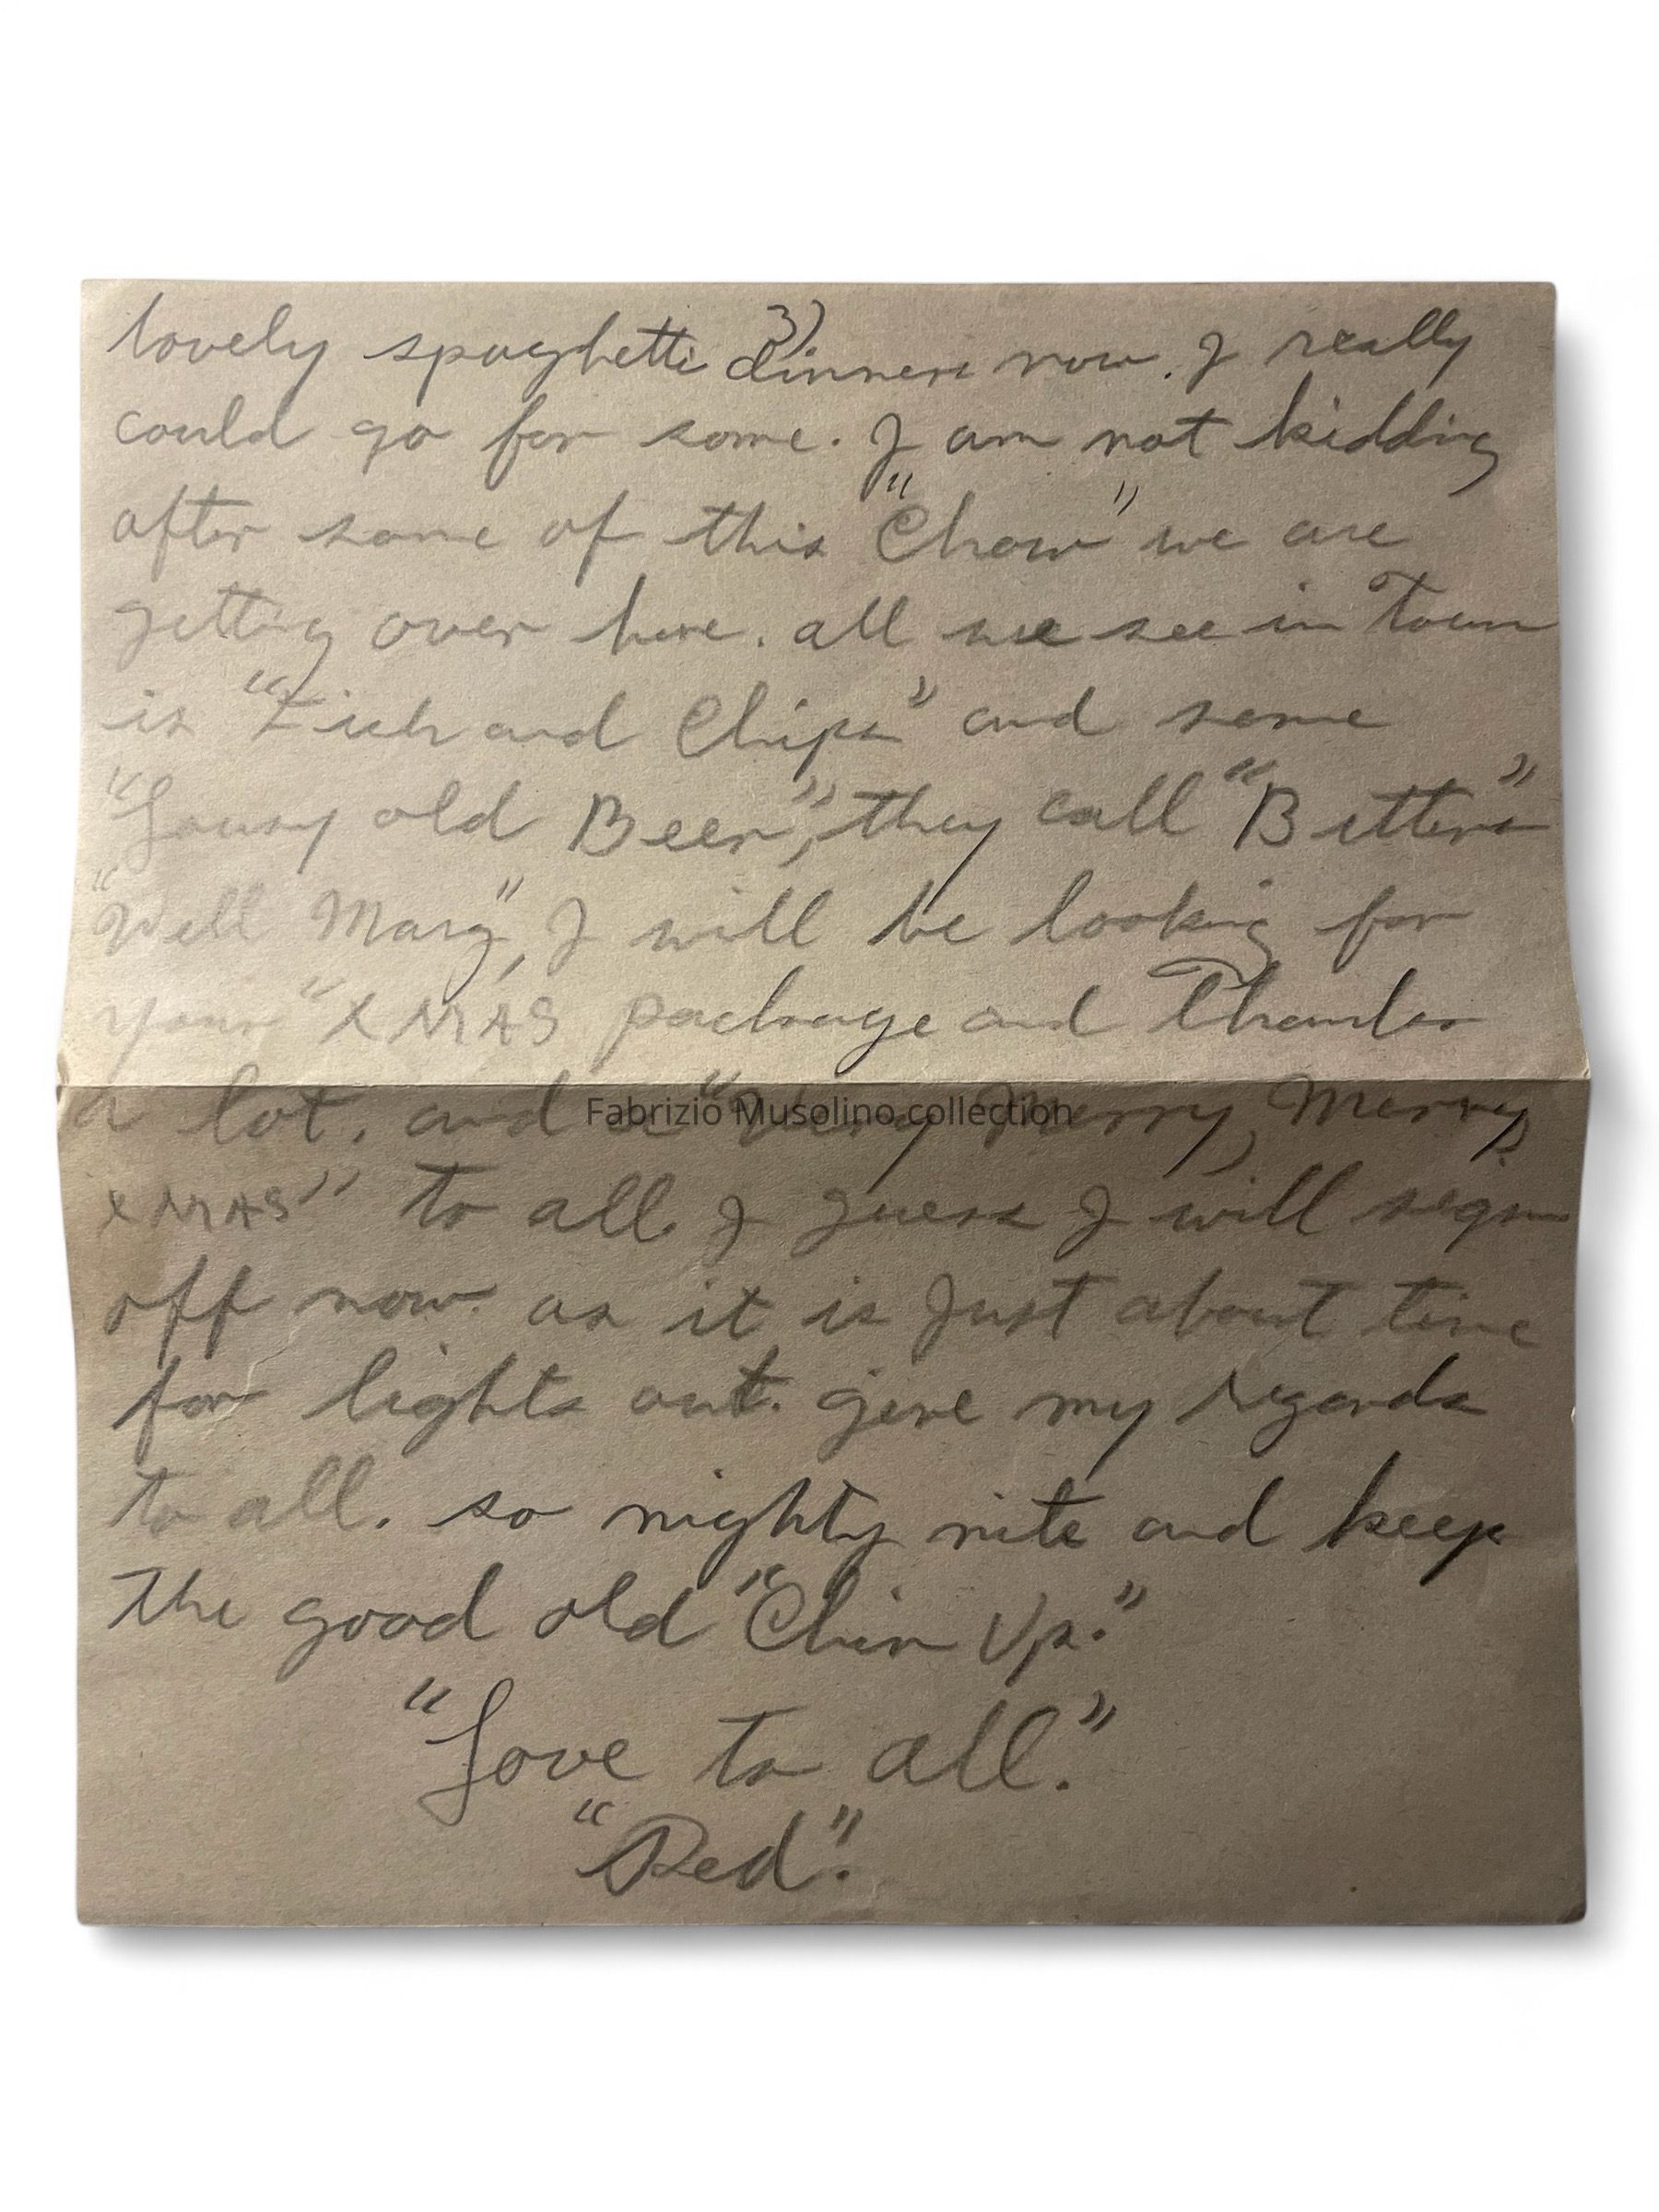 3)
lovely spaghetti dinners now. I really
could go for some. I am not kidding
after some of this "Chow" we are
getting over here. all we see in Town
is "Fish and Chips" and some
"Lousy old Beer", they call "Bitters"
"Well Marg", I will be looking for
your "XMAS package and Thanks
a lot. and a "Very Merry, Merry,
XMAS" to all. I guess I will sign
off now. as it is Just about time
for lights out. give my regards
to all. so nighty nite and keep
the good old "Chin Up."
"Love to all."
"Red".
Fabrizio Musolino collection